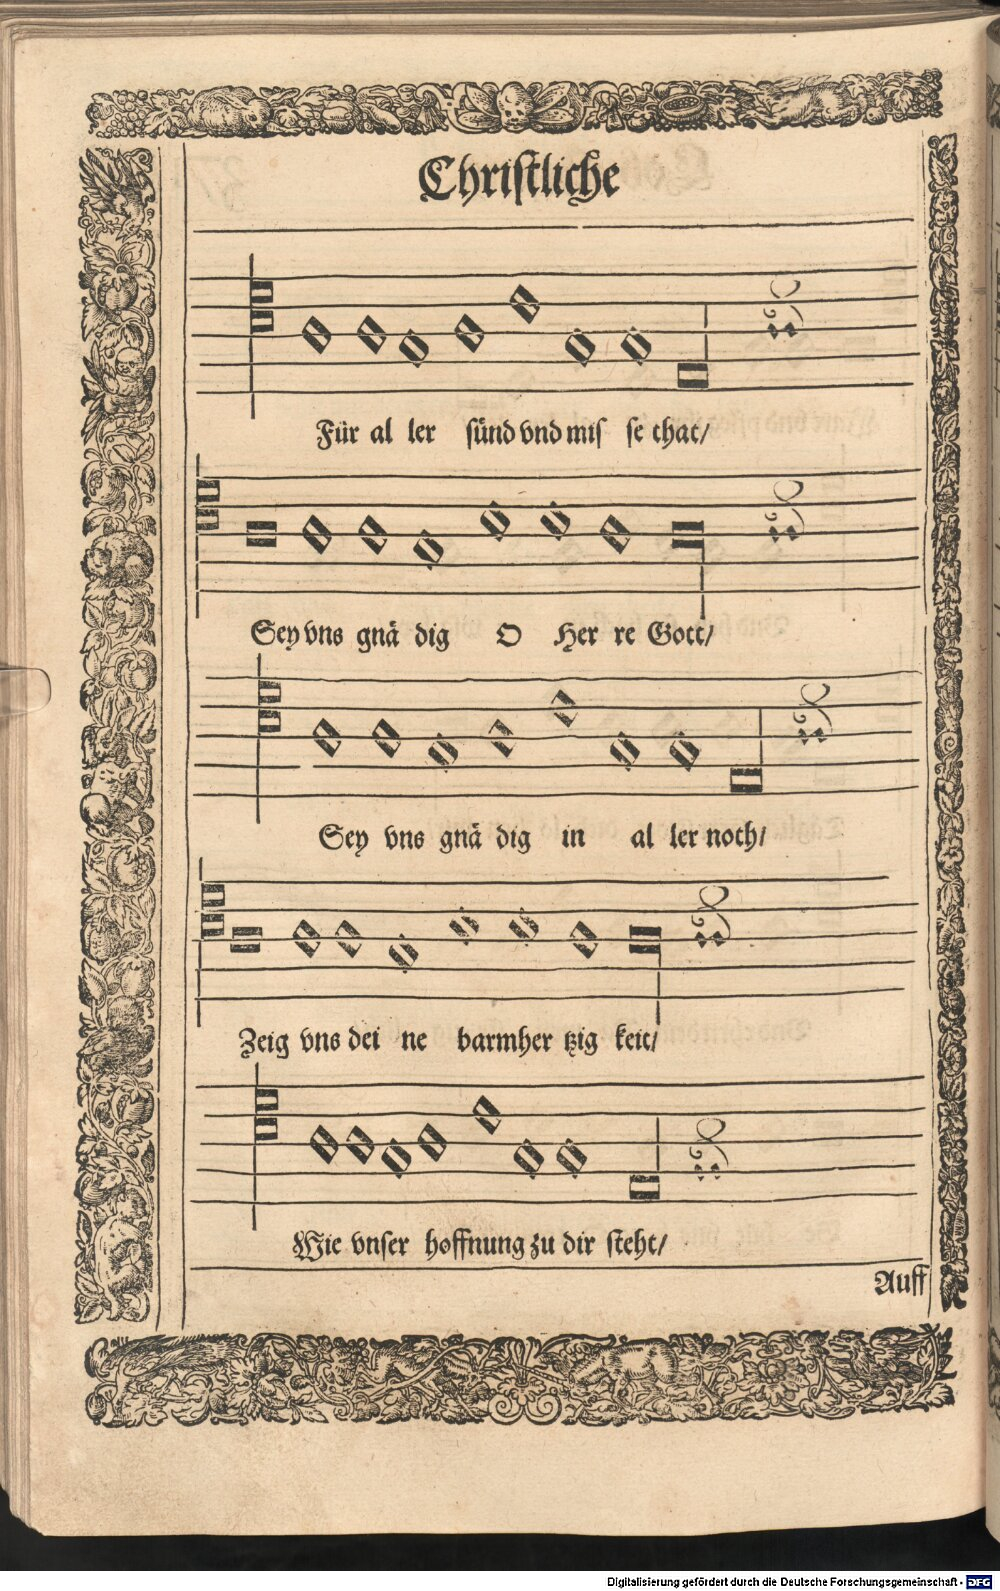 Christliche
Für al ler sünd vnd mis se that/
Sey vns gnä dig O Her re Gott/
Sey vns gnä dig in al ler noth/
Zeig vns dei ne barmher tzig keit/
Wie vnser hoffnung zu dir steht/
Auff
Digitalisierung gefördert durch die Deutsche Forschungsgemeinschaft - DFG